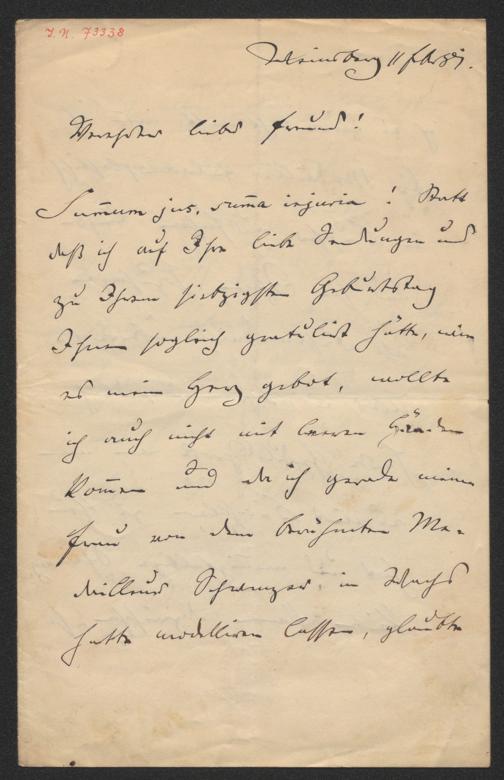 I.N. 73338
Weinsberg 11 Febr 87.
Verehrter lieber Freund!
Summum jus, summa injuria! Statt
daß ich auf Ihre liebe Sendungen und
zu Ihrem siebzigsten Geburtstag
Ihnen sogleich gratulirt hätte, wie
es mein Herz gebot, wollte
ich auch nicht mit leeren Händen
kommen und da ich gerade meine
Frau von dem berühmten Me-
dailleur Schwenzer in Wachs
hatte modelliren lassen, glaubte